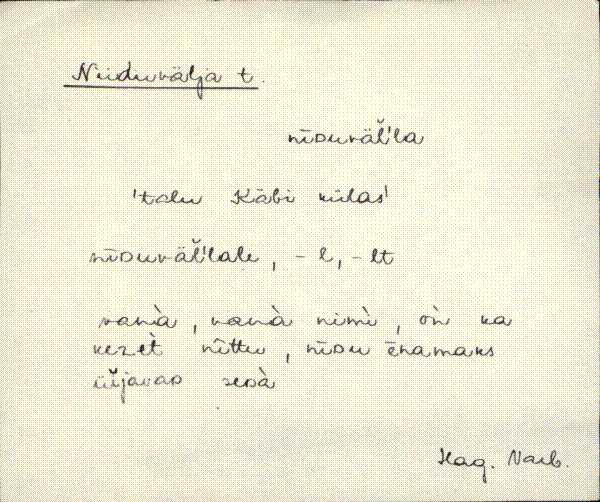 Niiduvälja t.
nīᴅuväl̆'l'a
'talu Käbi külas'
nīᴅuväl̆'l'ale, -l, -lt
vanà, vanà nimì, òn ka
kezèt nīttu, nīᴅu ēnamaks
üĭjavaᴅ seᴅà
Hag. Narb.